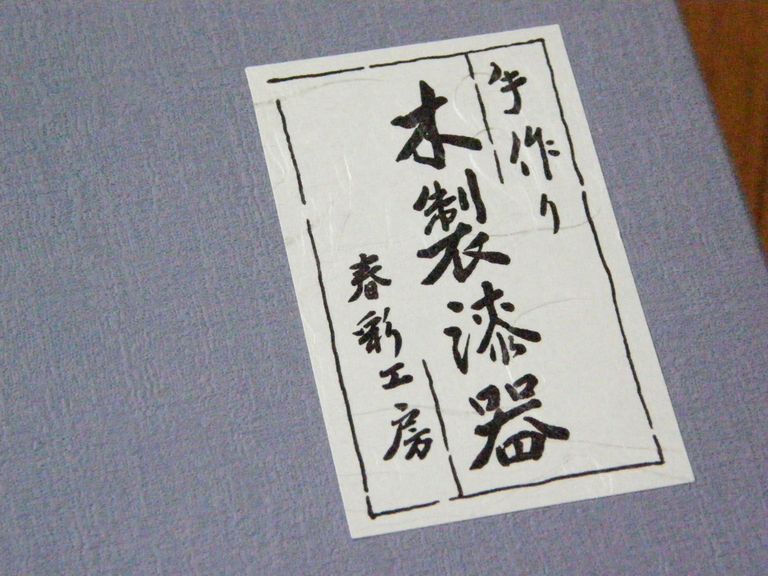 手作り
木製漆器
春彩工房